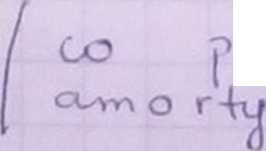 co р
amorty